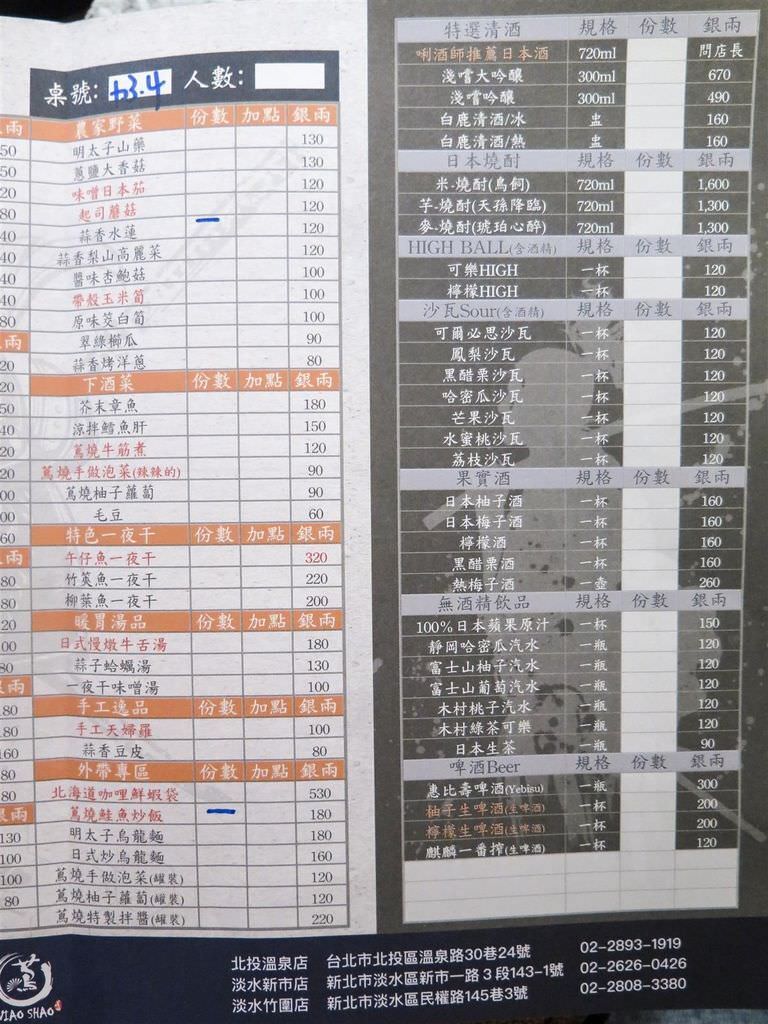 桌號: b3.4 人數:
兩 農家野菜 份數 加點 銀兩
50 明太子山藥 130
50 蔥鹽大香菇 130
20 味噌日本茄 120
80 起司蘑菇 120
40 蒜香水蓮 120
40 蒜香梨山高麗菜 120
40 醬味杏鮑菇 100
40 帶殼玉米筍 100
80 原味筊白筍 100
兩 翠綠櫛瓜 90
20 蒜香烤洋蔥 80
20 下酒菜 份數 加點 銀兩
50 芥末章魚 180
40 涼拌鱈魚肝 150
20 蔦燒牛筋煮 120
20 蔦燒手做泡菜(辣辣的) 90
00 蔦燒柚子蘿蔔 90
00 毛豆 60
60 特色一夜干 份數 加點 銀兩
兩 午仔魚一夜干 320
80 竹筴魚一夜干 220
80 柳葉魚一夜干 200
20 暖胃湯品 份數 加點 銀兩
80 日式慢燉牛舌湯 180
80 蒜子蛤蠣湯 130
兩 一夜干味噌湯 100
180 手工逸品 份數 加點 銀兩
180 手工天婦羅 100
160 蒜香豆皮 80
80 外帶專區 份數 加點 銀兩
80 北海道咖哩鮮蝦袋 530
兩 蔦燒鮭魚炒飯 180
130 明太子烏龍麵 180
100 日式炒烏龍麵 160
100 蔦燒手做泡菜(罐裝) 120
80 蔦燒柚子蘿蔔(罐裝) 120
蔦燒特製拌醬(罐裝) 220
特選清酒 規格 份數 銀兩
唎酒師推薦日本酒 720ml 問店長
淺嚐大吟釀 300ml 670
淺嚐吟釀 300ml 490
白鹿清酒/冰 盅 160
白鹿清酒/熱 盅 160
日本燒酎 規格 份數 銀兩
米-燒酎(鳥飼) 720ml 1,600
芋-燒酎(天孫降臨) 720ml 1,300
麥-燒酎(琥珀心醉) 720ml 1,300
HIGH BALL(含酒精) 規格 份數 銀兩
可樂HIGH 一杯 120
檸檬HIGH 一杯 120
沙瓦Sour(含酒精) 規格 份數 銀兩
可爾必思沙瓦 一杯 120
鳳梨沙瓦 一杯 120
黑醋栗沙瓦 一杯 120
哈密瓜沙瓦 一杯 120
芒果沙瓦 一杯 120
水蜜桃沙瓦 一杯 120
荔枝沙瓦 一杯 120
果實酒 規格 份數 銀兩
日本柚子酒 一杯 160
日本梅子酒 一杯 160
檸檬酒 一杯 160
黑醋栗酒 一杯 160
熱梅子酒 一壺 260
無酒精飲品 規格 份數 銀兩
100%日本蘋果原汁 一杯 150
靜岡哈密瓜汽水 一瓶 120
富士山柚子汽水 一瓶 120
富士山葡萄汽水 一瓶 120
木村桃子汽水 一瓶 120
木村綠茶可樂 一瓶 120
日本生茶 一瓶 90
啤酒Beer 規格 份數 銀兩
惠比壽啤酒(Yebisu) 一瓶 300
柚子生啤酒(生啤酒) 一杯 200
檸檬生啤酒(生啤酒) 一杯 200
麒麟一番搾(生啤酒) 一杯 120
蔦
NIAO SHAO
北投溫泉店 台北市北投區溫泉路30巷24號 02-2893-1919
淡水新市店 新北市淡水區新市一路3段143-1號 02-2626-0426
淡水竹圍店 新北市淡水區民權路145巷3號 02-2808-3380